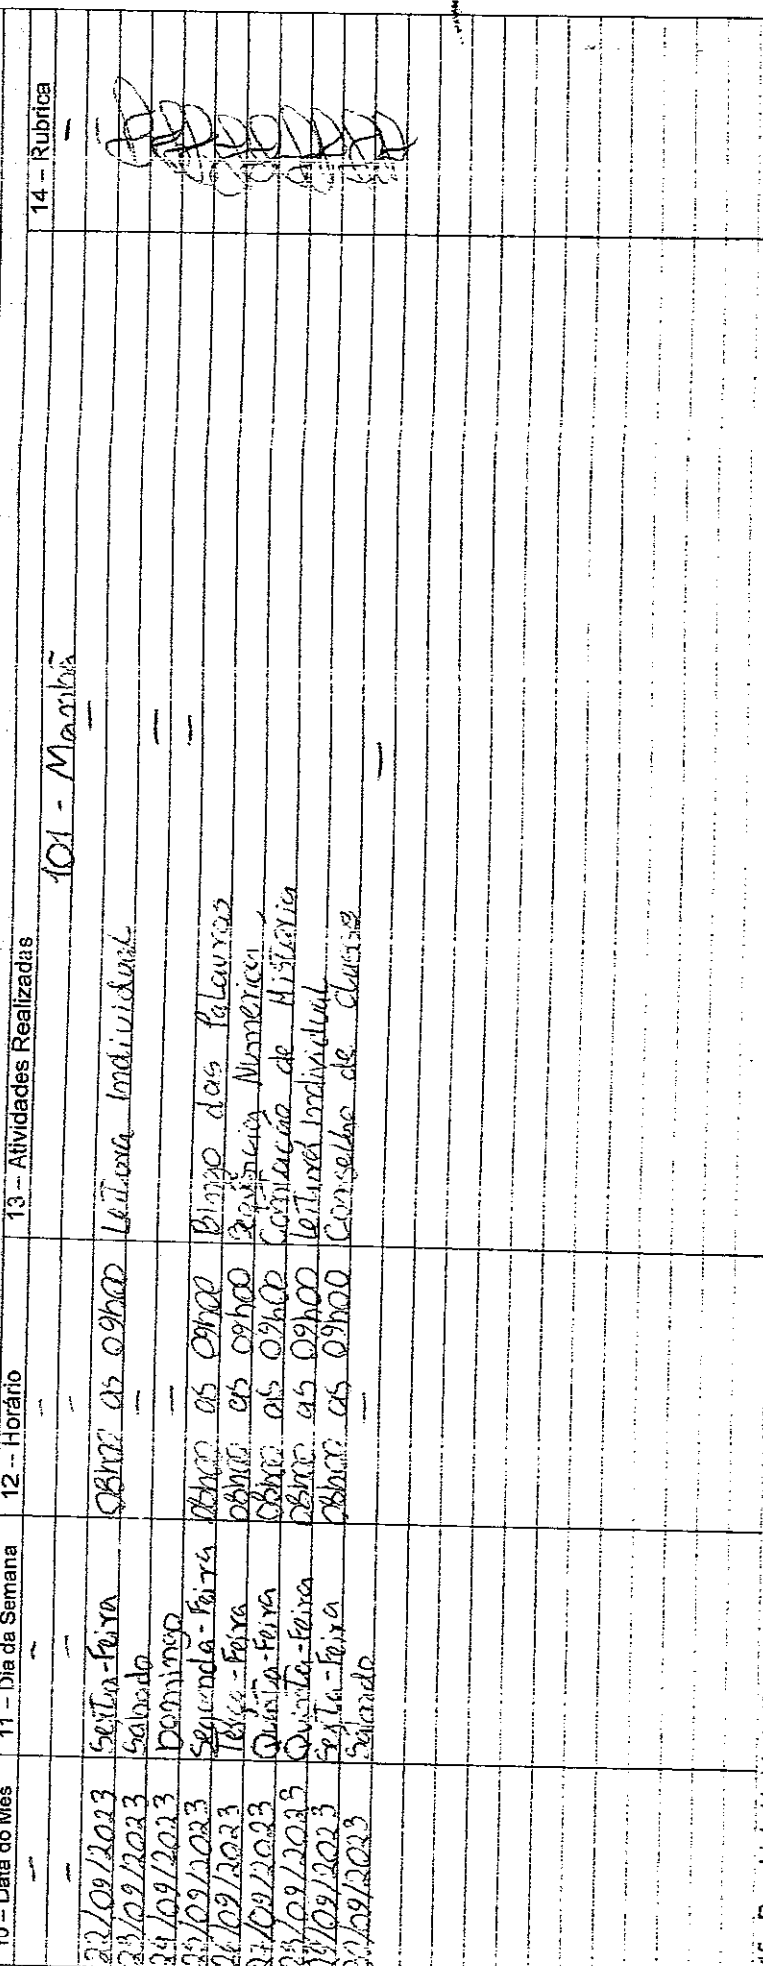 10 – Data do Mês 11 – Dia da Semana 12 – Horário 13 – Atividades Realizadas 14 – Rubrica
- - - 101 - Manhã -
- - -
22/09/2023 Sexta-Feira 08h00 as 09h00 Leitura Individual
23/09/2023 Sabado - -
24/09/2023 Domingo - -
25/09/2023 Segunda-Feira 08h00 as 09h00 Bingo das Palavras
26/09/2023 Terça-Feira 08h00 as 09h00 Sequência Numerica
27/09/2023 Quarta-Feira 08h00 as 09h00 Contação de Historia
28/09/2023 Quinta-Feira 08h00 as 09h00 Leitura Individual
29/09/2023 Sexta-Feira 08h00 as 09h00 Conselho de Classe
30/09/2023 Sabado - -